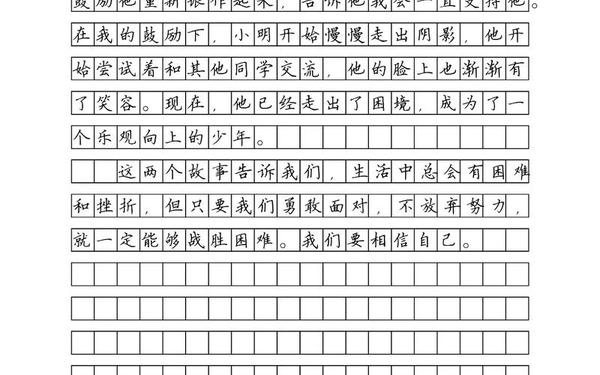 鼓励他重新振作起来，告诉他我会一直支持他。
在我的鼓励下，小明开始慢慢走出阴影，他开
始尝试着和其他同学交流，他的脸上也渐渐有
了笑容。现在，他已经走出了困境，成为了一
个乐观向上的少年。
这两个故事告诉我们，生活中总会有困难
和挫折，但只要我们勇敢面对，不放弃努力，
就一定能够战胜困难。我们要相信自己。